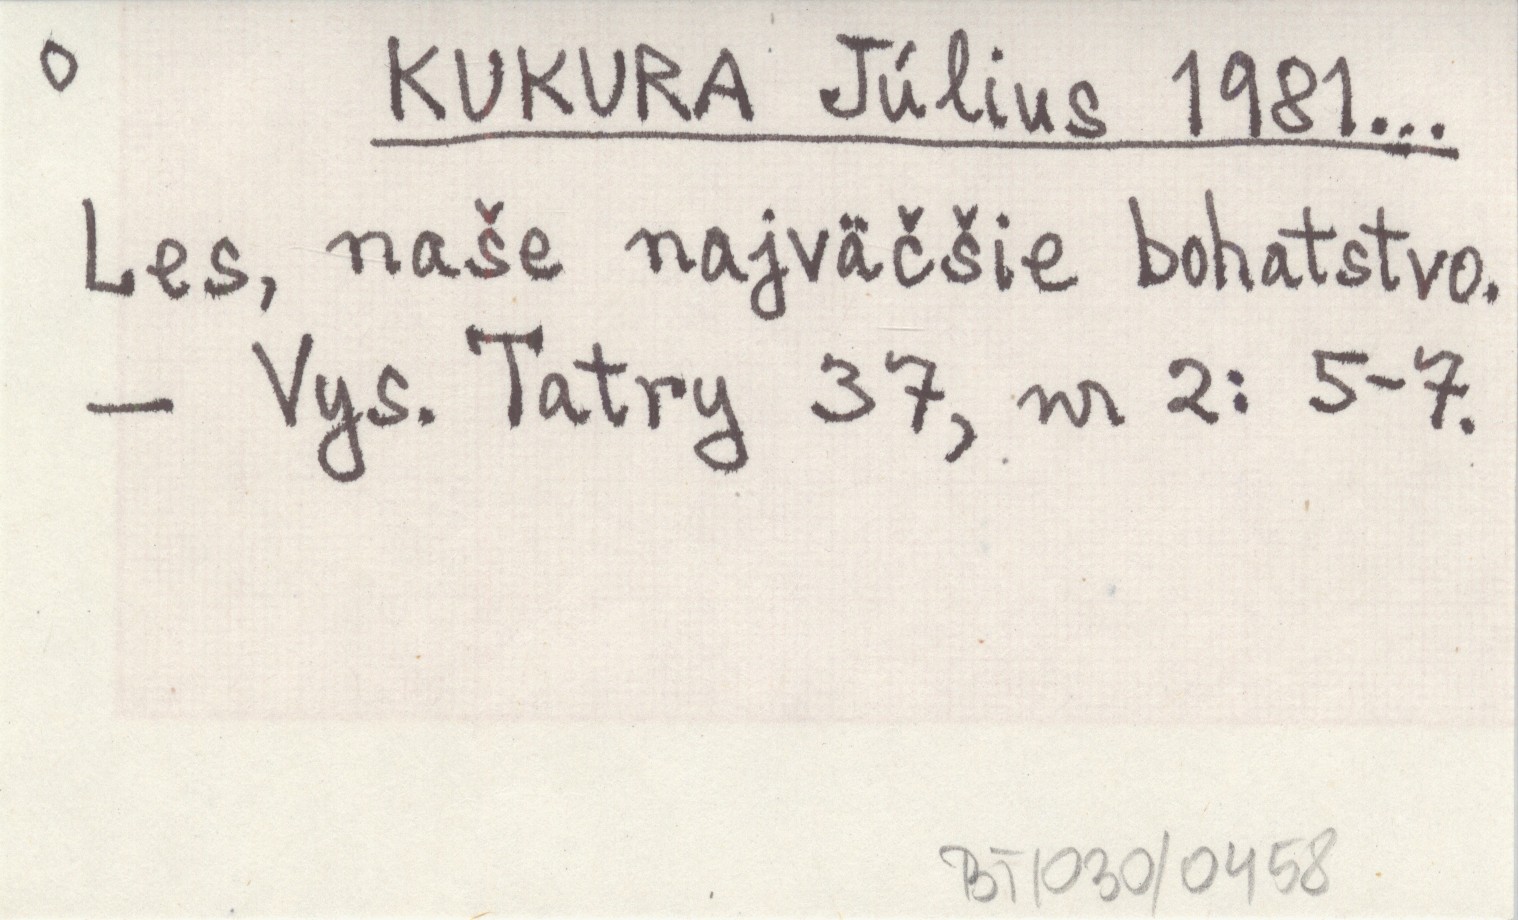 o KUKURA Július 1981...
Les, naše najväčšie bohatstvo.
— Vys. Tatry 37, nr 2: 5-7.
BT1030/0458